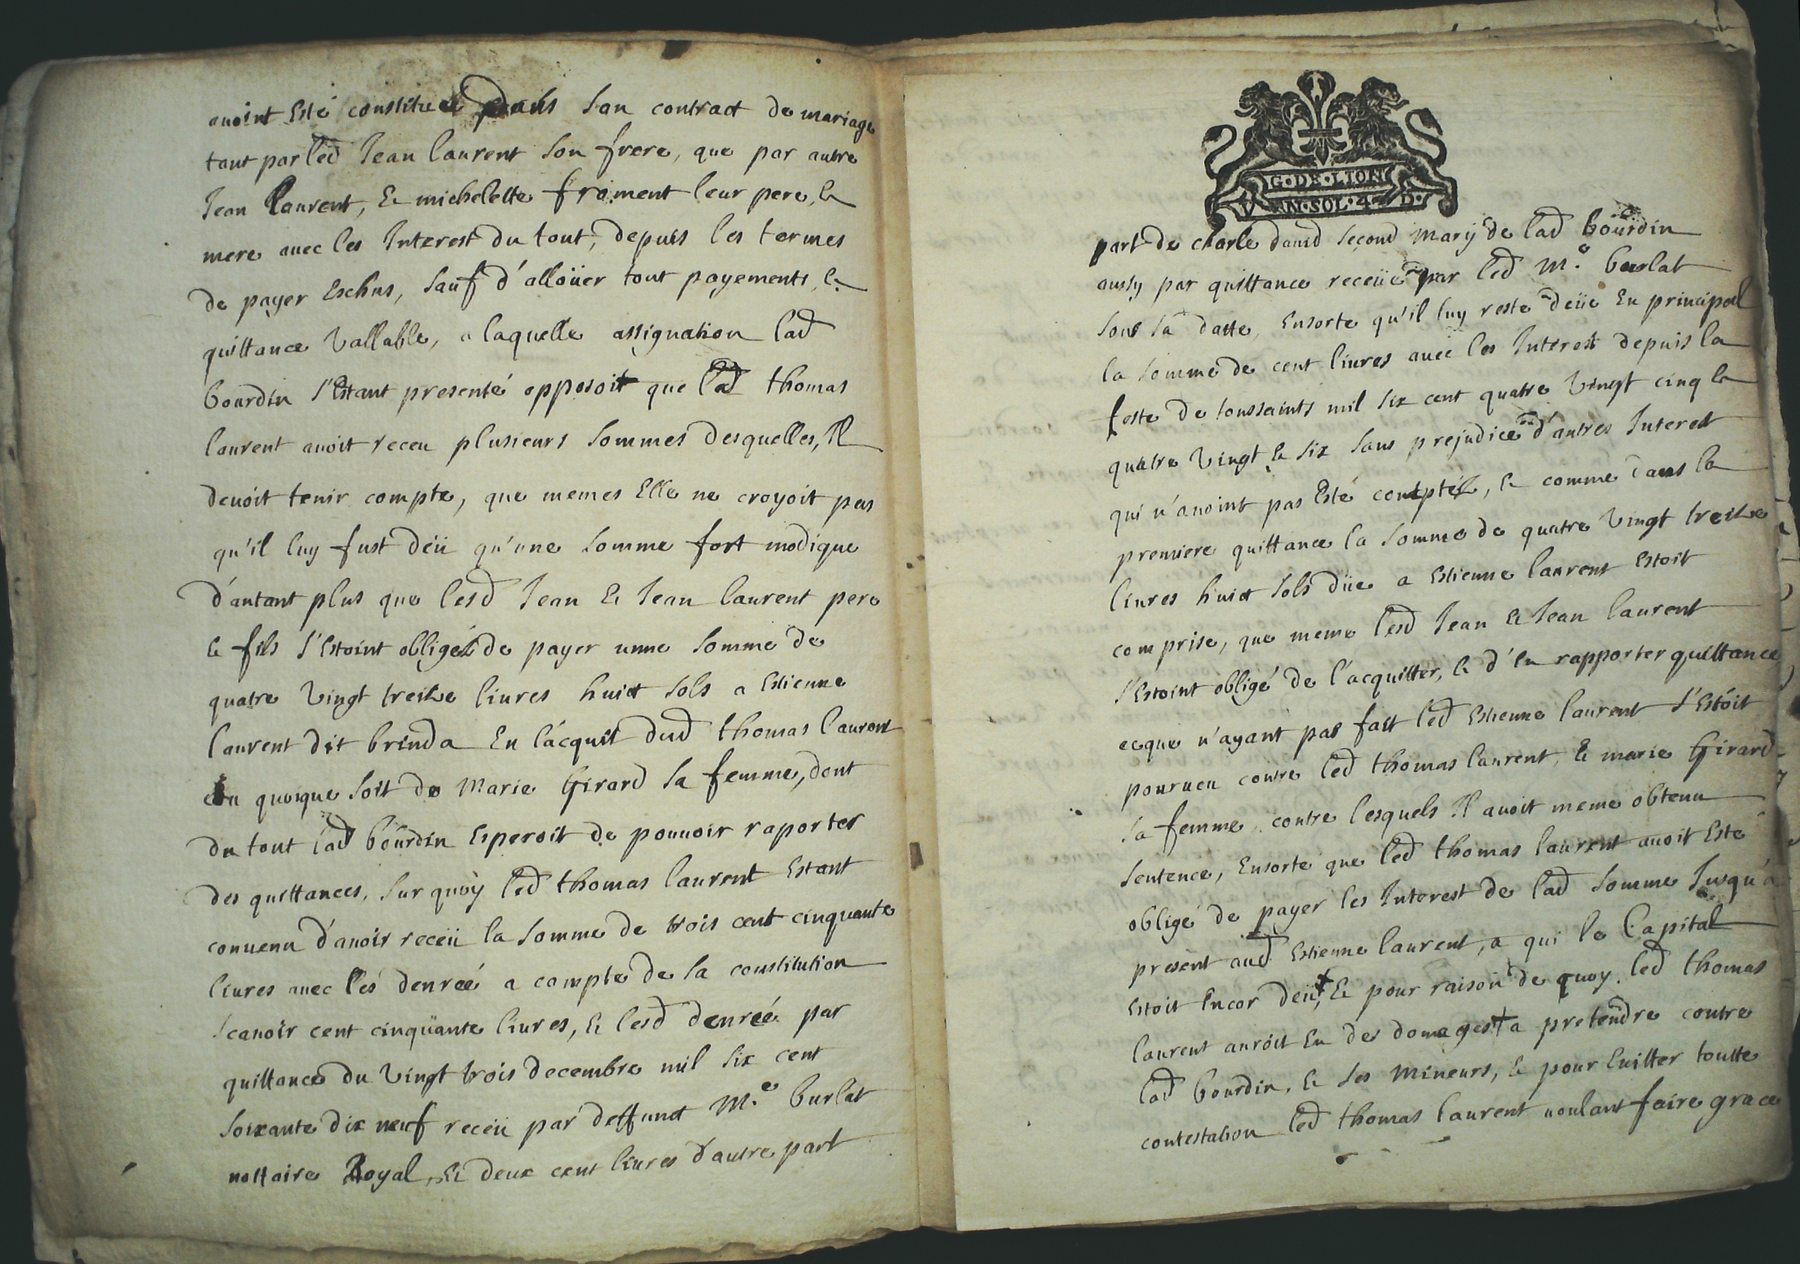 avoint Esté constitueé dans son contract de mariage
tant par led Jean laurent son frere, que par autre
Jean laurent, & michelette froment leur pere, &
mere avec les Interest du tout, depuis les termes
de payer Eschus, sauf d'alloüer tout payements, &
quittance vallable, a laquelle assignation lad
bourdin s'Estant presenté opposoit que led thomas
laurent avoit receu plusieurs sommes desquelles, Il
devoit tenir compte, que memes Elle ne croyoit pas
qu'il luy fust deü qu'une somme fort modique
d'autant plus que lesd Jean & Jean laurent pere
& fils s'Estoint obligés de payer unne somme de
quatre vingt treize livres huict sols a Estienne
laurent dit brinda En l'acquit dud thomas laurent
ou quoyque soit de Marie Girard sa femme, dont
du tout lad bourdin Esperoit de pouvoir raporter
des quittances, sur quoy led thomas laurent Estant
convenu d'avoir receü la somme de trois cent cinquante
livres avec les denreé a compte de la constitution
scavoir cent cinquante livres, & lesd denreé par
quittance du vingt trois decembre mil six cent
soixante dix neuf receü par deffunct M.e burlat
nottaire Royal, & deux cent livres d'autre part
G·DE·LION
V AN·SOL·4·D·
part de charle david second mary de lad bourdin
aussy par quittance receüe par led M.e burlat
sous sa datte, Ensorte qu'il luy reste deüe En principal
la somme de cent livres avec les Interest depuis la
feste de toussaints mil six cent quatre vingt cinq &
quatre vingt & six sans prejudice d'autres Interest
qui n'avoint pas Esté comptés, & comme dans la
premiere quittance la somme de quatre vingt treize
livres huict sols düe a Estienne laurent Estoit
comprise, que meme lesd Jean & Jean laurent
s'Estoint obligé de l'acquitter, & d'En rapporter quittance
ceque n'ayant pas fait led Estienne laurent s'Estoit
pourveu contre led thomas laurent, & marie Girard
sa femme, contre lesquels Il avoit meme obtenu
sentence, Ensorte que led thomas laurent avoit Esté
obligé de payer les Interest de lad somme Jusqu'a
present aud Estienne laurent, a qui le Capital
Estoit Encor deü, & pour raison de quoy led thomas
laurent auroit Eu des domages a pretendre contre
lad bourdin, & ses Mineurs, & pour Evitter toutte
contestation led thomas laurent voulant faire grace